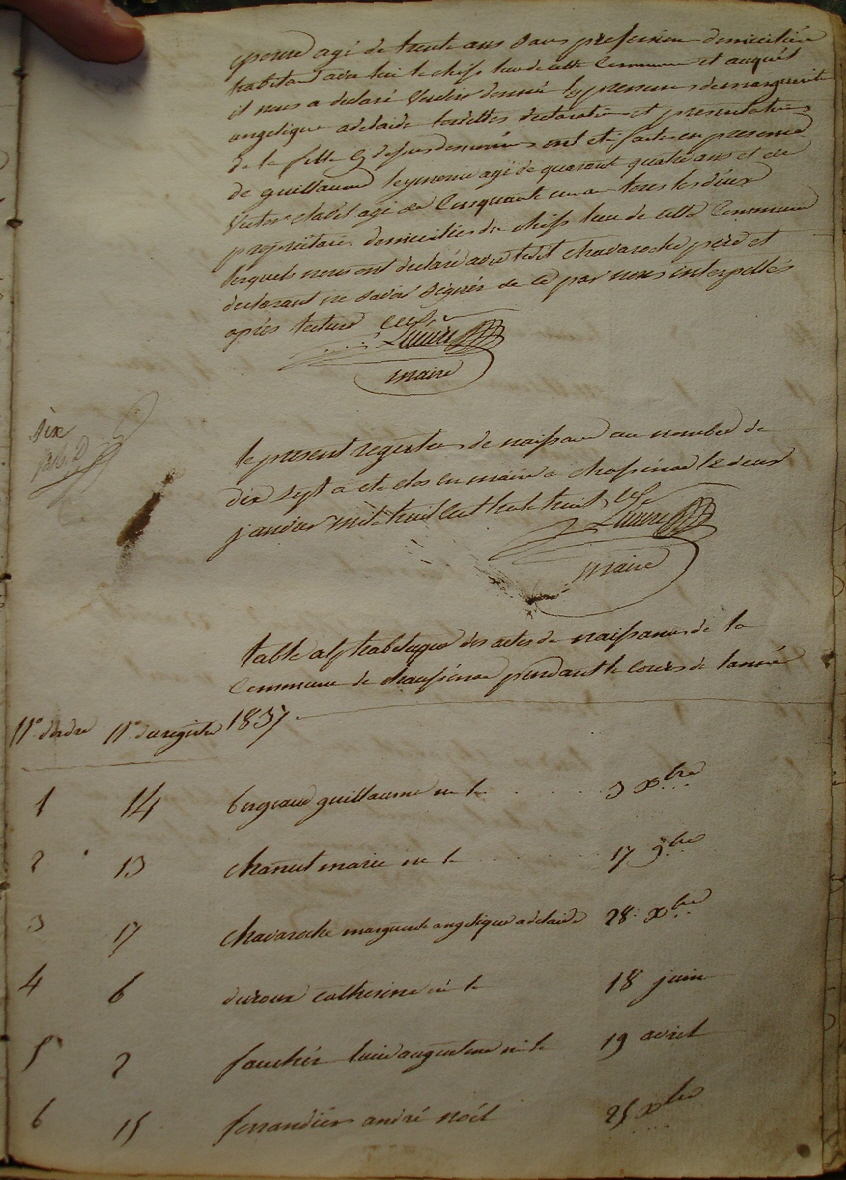 epouse agé de trente ans sans profession domiciliée
habitant avec lui le cheff lieu de cette Commune et auquel
il nous a declaré vouloir donner les prenoms de marguerite
angelique adelaide lesdittes declaration et presentation
de la fille ont eté faites en presence
de guillaume agé de quarant quatre ans et de
agé de Cinquante un an tous les deux
propriétaires domiciliés du cheff lieu de cette Commune
lesquels nous ont declaré avec ledit chavaroche père et
declarant ne savoir signer de Ce par nous interpellés
après lecture
maire
dix
le present registre de naissance au nombre de
dix sept a eté clos en mairie a chaussenac le deux
janvier mil huit cent trente huit
maire
table alphabetique des actes de naissances de la
Commune de chaussenac pendant le cours de l'année
n° d'ordre n° du registre 1837
1 14 bergeaud guillaume né le 3 xbre
2 13 chanut marie né le 17 9bre
3 17 chavaroche marguerite angelique adelaide 28 xbre
4 6 duroux catherine né le 18 juin
5 2 né le 19 avril
6 15 ferrandier andré noël 25 xbre